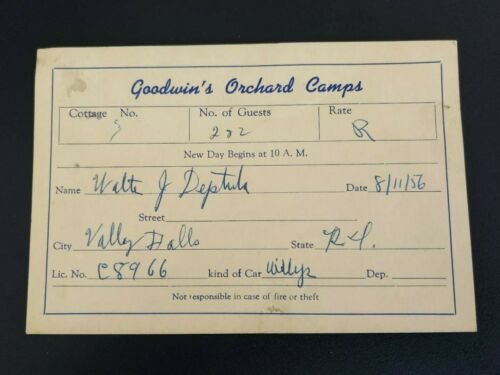 Goodwin's Orchard Camps
Cottage No. No. of Guests Rate
3 2 & 2 R
New Day Begins at 10 A. M.
Name Walter J Deptula Date 8/11/56
Street
City Valley Falls State R.I.
Lic. No. C8966 kind of Car Willys Dep.
Not responsible in case of fire or theft